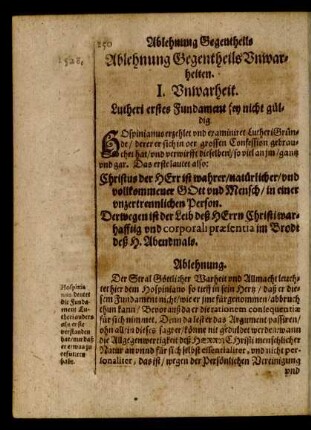 250 Ablehnung Gegentheils
Ablehnung Gegentheils Vnwar-
heiten.
I. Vnwarheit.
Lutheri erstes Fundament sey nicht gül-
dig
HOspinianus erzehlet vnd examiniret Lutheri Grün-
de / derer er sich in der grossen Confession gebrau-
chet hat / vnd verwirfft dieselben / so viel an jm / gantz
vnd gar. Das erste lautet also:
Christus der HErr ist wahrer / natürlicher / vnd
vollkommener GOtt vnd Mensch / in einer
vnzertrennlichen Person.
Derwegen ist der Leib deß HErrn Christi war-
hafftig vnd corporali præsentia im Brodt
deß H. Abendmals.
Ablehnung.
Der Stral Göttlicher Warheit vnd Allmacht leuch-
tet hier dem Hospiniano so tieff in sein Hertz / daß er die-
sem Fundament nicht / wie er jme für genommen / abbruch
thun kann / Bevorauß da er die rationem consequentiæ
für sich nimmet. Denn da lest er das Argument passiren /
ohn allein dieses sagt er / könne nit geduldet werden / wann
die Allgegenwertigkeit deß HERRN Christi menschlicher
Natur an vnd für sich selbst essentialiter, vnd nicht per-
sonaliter, das ist / wegen der Persönlichen Vereinigung
vnd
Hospinia-
nus deutet
die funda-
ment Lu-
theri anders
als er sie
verstanden
hat / nur daß
er etwas zu
refutiren
habe.